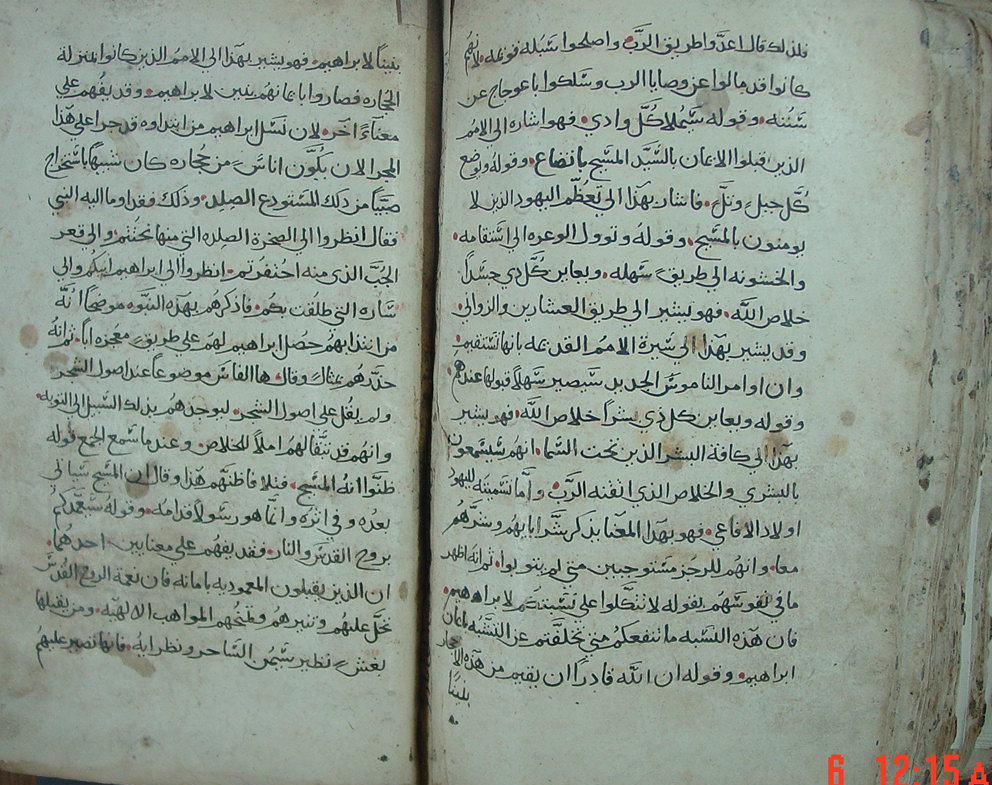 فلذلك قال اعدوا طريق الرب واصلحوا سبله قويمه لانهم
كانوا قد مالوا عن وصايا الرب وسلكوا باعوجاج عن
سننه وقوله سيملا كل وادي فهو اشاره الى الامم
الذين قبلوا الايمان بالسيد المسيح باتضاع وقوله ويوضع
كل جبل وتل فاشار بهذا الى تعظم اليهود الذين لا
يومنون بالمسيح وقوله وتوول الوعره الى استقامه
والخشونه الى طريق سهله ويعاين كل ذي جسدا
خلاص الله فهو يشير الى طريق العشارين والزواني
وقد يشير بهذا الى سيرة الامم القديمه بانها تستقيم
وان اوامر الناموس الجديد سيصير سهلا قبولها عندهم
وقوله ويعاين كل ذي بشرا خلاص الله فهو يشير
بهذا الى كافة البشر الذين تحت السما انهم سيسمعون
بالبشرى والخلاص الذي اتقنه الرب واما تسميته لليهود
اولاد الافاعي فهو بهذا المعنا يذكر بشر ابايهم وشرهم
معا وانهم للرجز مستوجبين متى لم يتوبوا ثم انه اظهر
ما في نفوسهم بقوله لا تتكلوا على نسبتكم لابراهيم
فان هذه النسبه ما تنفعكم متى تخلفتم عن التشبه بايمان
ابراهيم وقوله ان الله قادرا ان يقيم من هذه الاحجار
بنينا
بنينا لابراهيم فهو يشير بهذا الى الامم الذين كانوا بمنزلة
الحجاره فصاروا بايمانهم بنين لابراهيم وقد يفهم على
معناة اخر لان نسل ابراهيم من ابتداوه قد جرا على هذا
المجرا لان يكون اناس من حجاره كان شبيها باستخراج
صبيا من ذلك المستودع الصلد وذلك فقد اوما اليه النبي
فقال انظروا الى الصخرة الصلده التي منها نحتتم والى قعر
الجب الذي منه احتفرتم انظروا الى ابراهيم ابيكم والى
ساره التي طلقت بكم فاذكرهم بهذه النبوه موضحا انه
من ابتدايهم حصل ابراهيم لهم على طريق معجزه ابا ثم انه
حذرهم بمثال وقال ها الفاس موضوعا عند اصول الشجر
ولم يقل على اصول الشجر ليوجدهم بذلك السبيل الى التوبه
وانهم قد تبقا لهم املا للخلاص وعند ما سمع الجمع قوله
ظنوا انه المسيح فتلافا ظنهم هذا وقال ان المسيح سياتي
بعده وفي اثره وانما هو رسولا قدامه وقوله سيعمدكم
بروح القدس والنار فقد يفهم على معنايين احدهما
ان الذين يقبلون المعموديه بامانه فان نعمة الروح القدس
تحل عليهم وتنيرهم وتمنحهم المواهب الالهيه ومن يقبلها
بغش نظير سيمن الساحر ونظرايه فانها تصير عليهم
6 12:15 A